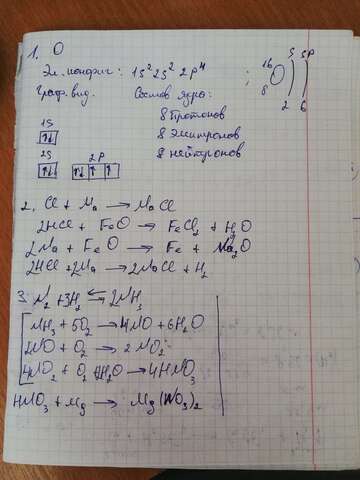 1. O
Эл. конфиг: 1s² 2s² 2p⁴ ; 16 8 O ) ) S SP 2 6
Граф. вид. Состав ядра:
8 протонов
1S 8 электронов
↑↓ 8 нейтронов
2S 2P
↑↓ ↑↓ ↑ ↑
2. Cl + Na → NaCl
2HCl + FeO → FeCl₂ + H₂O
2Na + FeO → Fe + Na₂O
2HCl + 2Na → 2NaCl + H₂
3. N₂ + 3H₂ ⇄ 2NH₃
NH₃ + 5O₂ → 4NO + 6H₂O
2NO + O₂ → 2NO₂
4NO₂ + O₂ + 2H₂O → 4HNO₃
HNO₃ + Mg → Mg(NO₃)₂